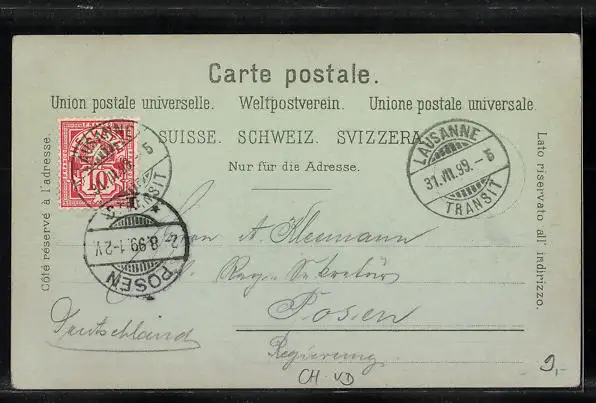 Carte postale.
Union postale universelle. Weltpostverein. Unione postale universale.
SUISSE. SCHWEIZ. SVIZZERA
Nur für die Adresse.
Côté réservé à l'adresse.
Lato riservato all' indirizzo.
10
LAUSANNE
31.VII.99.-5
TRANSIT
LAUSANNE
TRANSIT
POSEN
2.8.99.1-2V.
Herrn A. Kleemann
Reg. Sekretär
Posen
Regierung
Deutschland
CH-VD
9,-